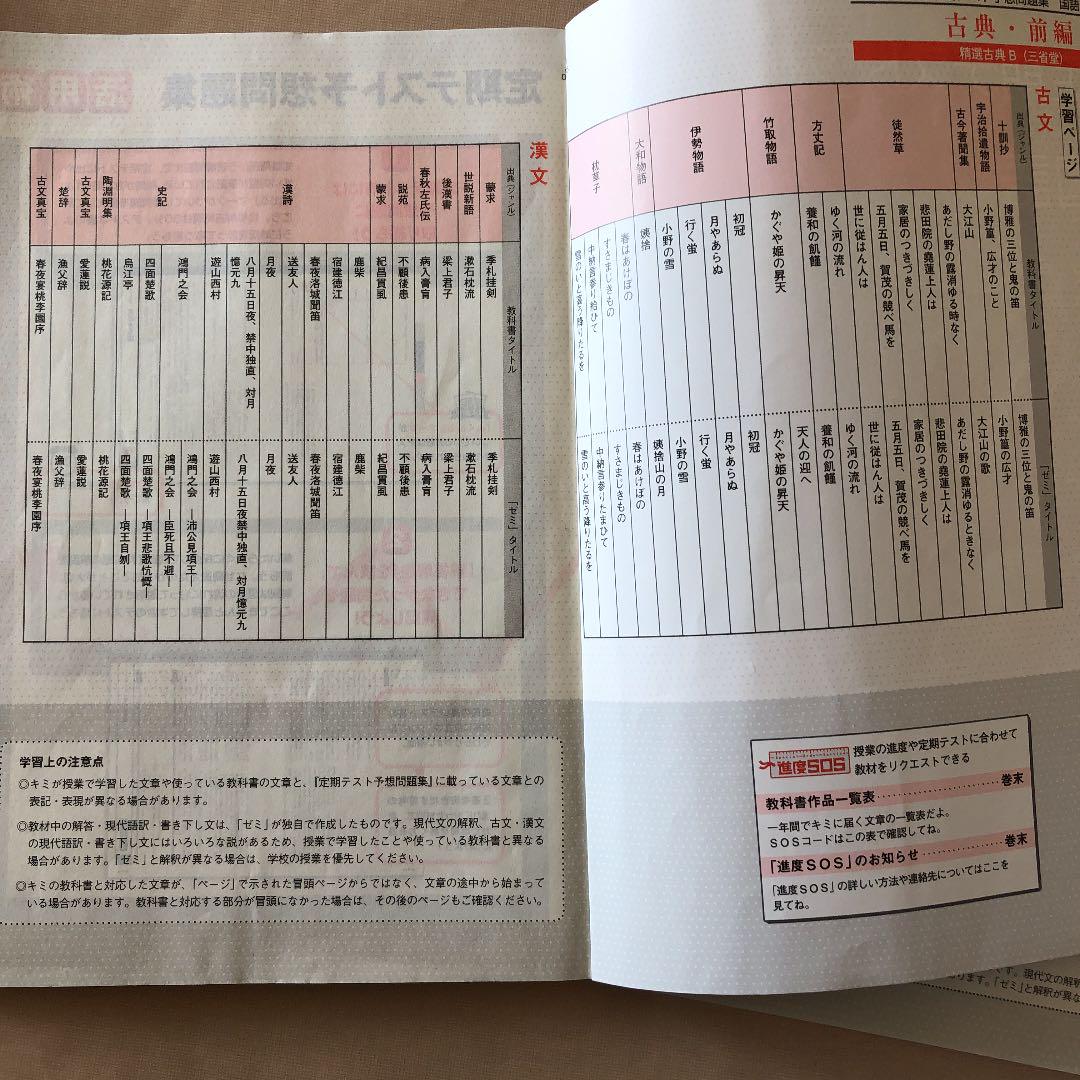 予想問題集 国語
古典・前編
精選古典B(三省堂)
学習ページ
古文
出典(ジャンル) 教科書タイトル 「ゼミ」タイトル
十訓抄 博雅の三位と鬼の笛 博雅の三位と鬼の笛
宇治拾遺物語 小野篁、広才のこと 小野篁の広才
古今著聞集 大江山 大江山の歌
徒然草 あだし野の露消ゆる時なく あだし野の露消ゆるときなく
悲田院の堯蓮上人は 悲田院の堯蓮上人は
家居のつきづきしく 家居のつきづきしく
五月五日、賀茂の競べ馬を 五月五日、賀茂の競べ馬を
世に従はん人は 世に従はん人は
方丈記 ゆく河の流れ ゆく河の流れ
養和の飢饉 養和の飢饉
竹取物語 かぐや姫の昇天 天人の迎へ
かぐや姫の昇天
伊勢物語 初冠 初冠
月やあらぬ 月やあらぬ
行く蛍 行く蛍
小野の雪 小野の雪
大和物語 姨捨 姨捨山の月
枕草子 春はあけぼの 春はあけぼの
すさまじきもの すさまじきもの
中納言参り給ひて 中納言参りたまひて
雪のいと高う降りたるを 雪のいと高う降りたるを
進度SOS
授業の進度や定期テストに合わせて
教材をリクエストできる
教科書作品一覧表 巻末
一年間でキミに届く文章の一覧表だよ。
SOSコードはこの表で確認してね。
「進度SOS」のお知らせ 巻末
「進度SOS」の詳しい方法や連絡先についてはここを
見てね。
漢文
出典(ジャンル) 教科書タイトル 「ゼミ」タイトル
蒙求 季札挂剣 季札挂剣
世説新語 漱石枕流 漱石枕流
後漢書 梁上君子 梁上君子
春秋左氏伝 病入膏肓 病入膏肓
説苑 不顧後患 不顧後患
蒙求 紀昌貫虱 紀昌貫虱
漢詩 鹿柴 鹿柴
宿建徳江 宿建徳江
春夜洛城聞笛 春夜洛城聞笛
送友人 送友人
月夜 月夜
八月十五日夜、禁中独直、対月
憶元九 八月十五日夜禁中独直、対月憶元九
遊山西村 遊山西村
史記 鴻門之会 鴻門之会 ―沛公見項王―
鴻門之会 ―臣死且不避―
四面楚歌 四面楚歌 ―項王悲歌忼慨―
烏江亭 四面楚歌 ―項王自刎―
陶淵明集 桃花源記 桃花源記
古文真宝 愛蓮説 愛蓮説
楚辞 漁父辞 漁父辞
古文真宝 春夜宴桃李園序 春夜宴桃李園序
学習上の注意点
◎キミが授業で学習した文章や使っている教科書の文章と、『定期テスト予想問題集』に載っている文章との
表記・表現が異なる場合があります。
◎教材中の解答・現代語訳・書き下し文は、「ゼミ」が独自で作成したものです。現代文の解釈、古文・漢文
の現代語訳・書き下し文にはいろいろな説があるため、授業で学習したことや使っている教科書と異なる
場合があります。「ゼミ」と解釈が異なる場合は、学校の授業を優先してください。
◎キミの教科書と対応した文章が、「ページ」で示された冒頭ページからではなく、文章の途中から始まって
いる場合があります。教科書と対応する部分が冒頭になかった場合は、その後のページもご確認ください。
です。現代文の解釈
「ゼミ」と解釈が異な